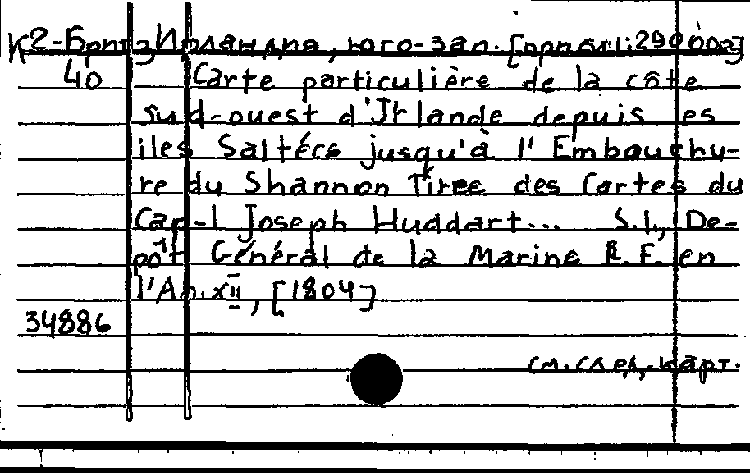 К2-Брит Ирландия, юго-зап. [прибл.1:290000]
40 Carte particulière de la côte
sud-ouest d'Irlande depuis les
iles Saltées jusqu'à l'Embouchu-
re du Shannon Tiree des Cartes du
Cap-l Joseph Huddart... S.l., De-
pôt Général de la Marine R.F. en
l'An.XII, [1804]
34886
см. след. карт.